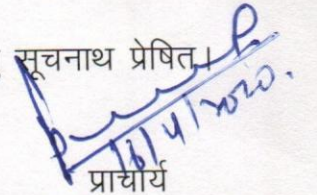 सूचनाथ प्रेषित।
16/4/2020.
प्राचार्य